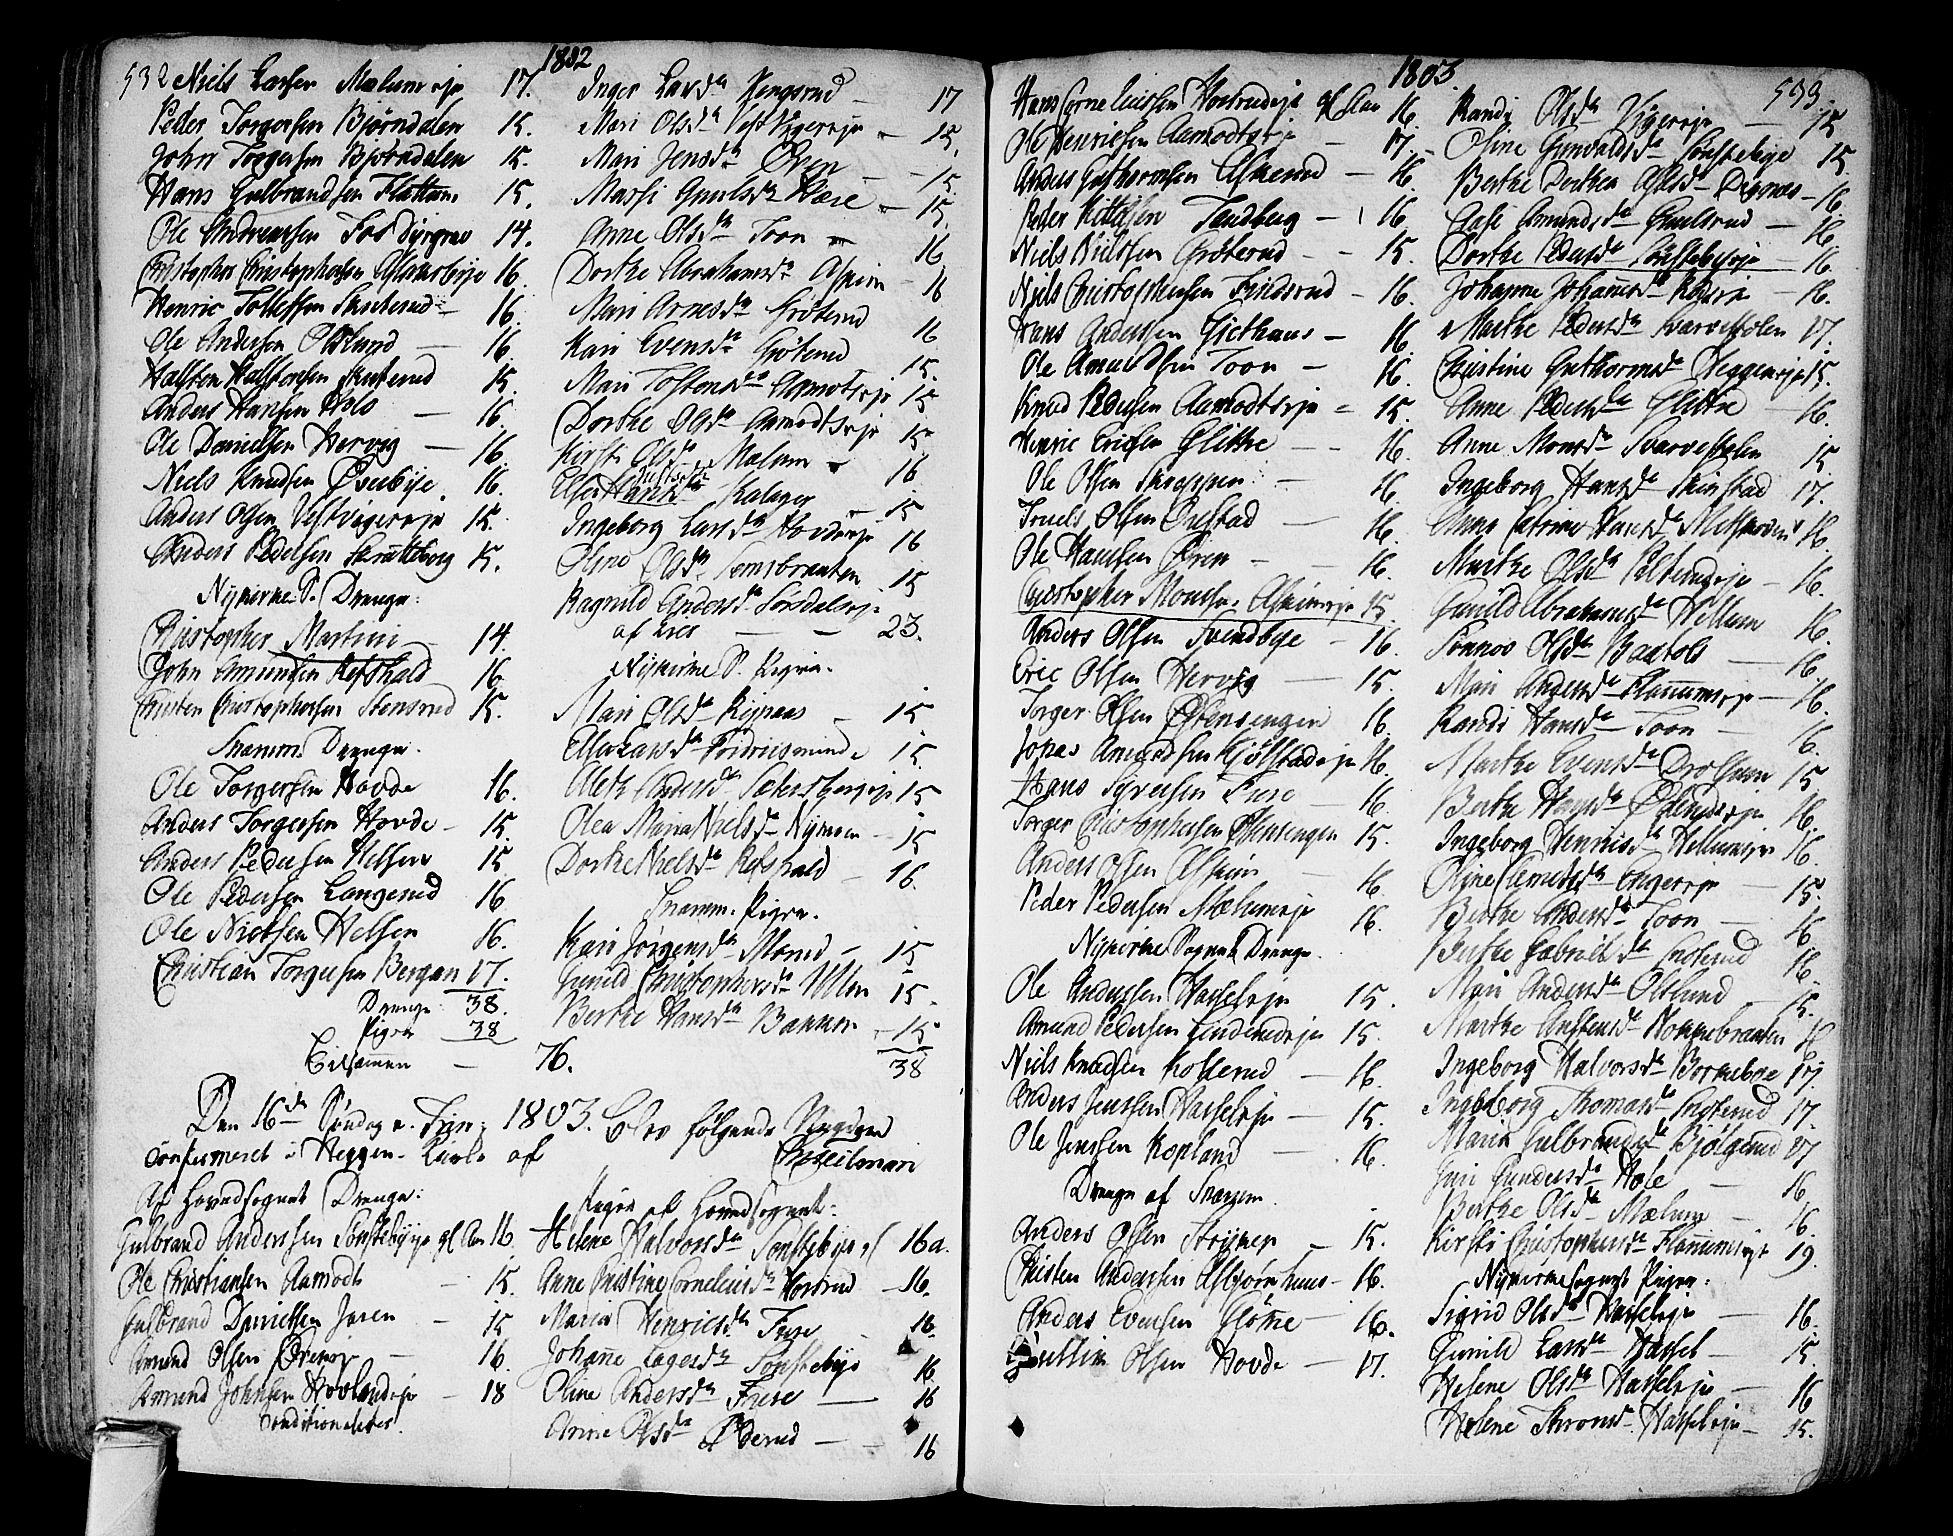 532 1802
Niels Larsen Mælumeje 17.
Peder Torgersen Bjørndalen 15.
John Torgersen Bjørndalen 15.
Hans Gulbrandsen Flattum 15.
Ole Andreassen Fos 14.
Christopher Christophersen 16.
Henric Tollefsen Skuterud 16.
Ole Andersen Oslund 16.
Halsten Halstensen Skuterud 15.
Anders Hansen Hole 16.
Ole Danielsen Hervig 16.
Niels Knudsen Øvebye 16.
Anders Olsen Vestvigereje 15.
Anders Pedersen 15.
Nykirke S. Drenge:
Christopher Martini 14.
John Amundsen Refshald 16.
Christen Christophersen Stensrud 15.
Snarum Drenge.
Ole Torgersen Hovde 16.
Anders Torgersen Hovde 15.
Anders Pedersen Helsen 15
Ole Pedersen Langerud 16
Ole Nielsen Helsen 16.
Christian Torgersen Bergan 17.
Drenge 38.
Piger 38
Tilsammen 76.
Inger Larsdr Kongsrud 17
Mari Olsdr Vestvigereje 15.
Mari Jensdr Øren 15.
Marthe Gunulsdr Hære 15.
Anne Olsdr Toon 16
Dorthe Abrahamsdr Askim 16
Mari Arnesdr Grøterud 16
Kari Evensdr Gøterud 15.
Mari Tostensdr Aamotseje 15
Dorthe Olsdr Aamodtseje 15
Kirsti Olsdr Mælum 16
Else Hansdr Kalager 15
Ingeborg Larsdr Hovdeeje 16
Oline Olsdr 15
Ragnild Andersdr
af Lier 23.
Nykirke S. Piger.
Mari Olsdr Kopaas 15
Else Larsdr Fridrichsminde 15.
Aleth Andersdr 15
Olea Maria Nielsdr Nymoen 15
Dorthe Nielsdr Refshald 16.
Snarum Piger.
Kari Jørgensdr Morud 15
Gunild Christophersdr Ulen 15.
Berthe Hansdr Bannen 15
38
Den 16de Søndag e. Trin: 1803. Blev følgende Ungdom
confirmeret i Heggen Kirke af
Af Hovedsognet Drenge:
Gulbrand Anderssen Sønstebyeje gl. Aar 16
Ole Christiansen Aamodt 15.
Gulbrand Danielsen Jøren 15
Amund Olsen Øreneje 16.
Amund Johnsen Hovlandeje 18
conditionaliter.
Piger af Hovedsognet:
Helene Halvorsdr Sønstebyeje gl 16 a.
Anne Christine Corneliusdr Horsrud 16.
Maria Henricsdr Fure 16.
Johane Lagesdr Sønstebye 16
Oline Andersdr Fure 16
Anne Olsdr Øderud 16
1803. 533
Hans Corneliussen Horsrudeje gl Aar 16.
Ole Henricsen Aamodtseje 17.
Anders Guthormsen Askerud 16.
Peder Kittelsen Tandberg 16.
Niels Nielssen Grøterud 15.
Niels Christophersen Findsrud 16.
Hans Andersen Giethuus 16
Ole Amundsen Toon 16.
Knud Pedersen Aamodtseje 15.
Henric Ericsen Glitre 16.
Ole Olsen Skreppen 16.
Truels Olsen Ørestad 16.
Ole Hansen Øren 16.
Christopher Monsen Askimeje 15.
Anders Olsen Svendbye 16.
Eric Olsen Hervig 15.
Torger Olsen Østensengen 16.
Jonas Amundsen Kjølstadeje 16.
Hans Syversen Fure 16.
Torger Christophersen Østensengen 15.
Anders Olsen Askim 16.
Peder Pedersen Mælumeje 16.
Nykirke Sogns Drenge.
Ole Anderssen Hasseleje 15.
Amund Pedersen Lunderudeje 15.
Niels Knudsen Kollerud 16.
Anders Jenssen Hasseleje 15.
Ole Jenssen Kopland 16.
Drenge af Snarum.
Anders Olsen Stryken 15.
Christen Andersen Asbjørnhuus 16.
Anders Evensen Gløtte 16.
Gullik Olsen Hovde 17.
Randi Olsdr Vigereje 15
Oline Gunvaldsdr Sønstebye 15
Berthe Dorthea Olsdr Digenæs 16
Amundsdr Gunulsrud 16
Dorthe Pedersdr Sønstebyeje 16.
Johanne Johannesdr 16.
Marthe Pedersdr Svarvestolen 17.
Christine Guthormsdr Heggeneje 15.
Anne Pedersdr Glitre 16.
Anne Monsdr Svarvestolen 15
Ingeborg Hansdr Skinstad 17.
Anne Catrine Hansdr 16.
Marthe Olsdr 16.
Gunild Abrahamsdr Hellum 16.
Sønnov Olsdr Bastol 16.
Mari Andersdr Flannumeje 16.
Randi Hansdr Toon 16.
Marthe Evensdr Drolsum 15
Berthe Hansdr Øderudseje 16.
Ingeborg Hennicsdr Hellumeje 16.
Oline Clemetsdr Engereje 15.
Berthe Andersdr Toon 16
Berthe Gabrielsdr Snoterud 16.
Mari Andersdr Oslund 15.
Marthe Anstensdr 16
Ingeborg Halvorsdr Borkeboe 17.
Ingeborg Thomasdr Snoterud 17.
Maria Gulbrandsdr Bjølgerud 17
Guri Gundersdr Hole 16.
Berthe Olsdr Mælum 16.
Kirsti Christophersdr Flannumeje 19.
Nykirkesognet Piger.
Sigrid Olsdr Hasseleje 16.
Gunild Larsdr Hassel 15.
Helene Olsdr Hasseleje 16
Helene Thronsdr Hasseleje 15.